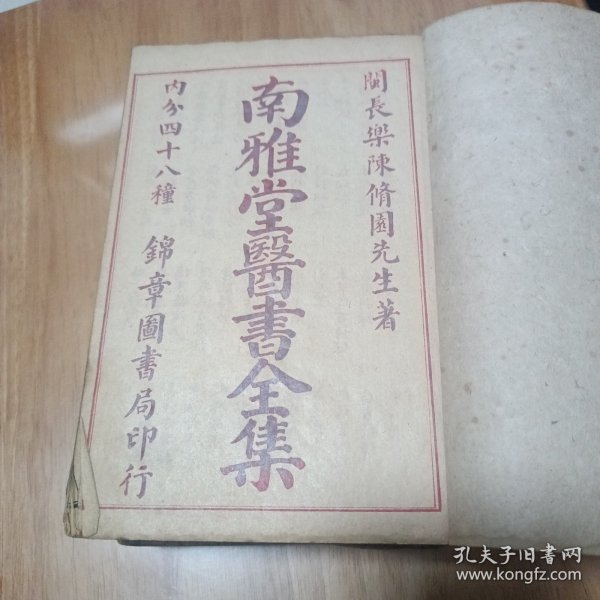 閩長樂陳脩園先生著
南雅堂醫書全集
内分四十八種
錦章圖書局印行
孔夫子旧书网
www.kongfz.com